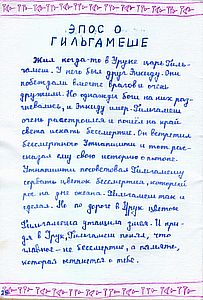 ЭПОС О
ГИЛЬГАМЕШЕ
Жил когда-то в Уруке царь Гиль-
гамеш. У него был друг Энкиду. Они
побеждали многие врагов и очень
дружили. Но однажды боги на них раз-
гневались, и Энкиду умер. Гильгамеш
очень расстроился и пошёл на край
света искать бессмертие. Он встретил
бессмертного Утнапишти и тот рас-
сказал ему свою историю о потопе.
Утнапишти посоветовал Гильгамешу
сорвать цветок бессмертия, который
рос на дне океана. Гильгамеш так и
сделал. Но по дороге в Урук цветок
Гильгамеша утащила змея. И при-
дя в Урук, Гильгамеш понял, что
главное - не бессмертие, а память,
которая останется о тебе.